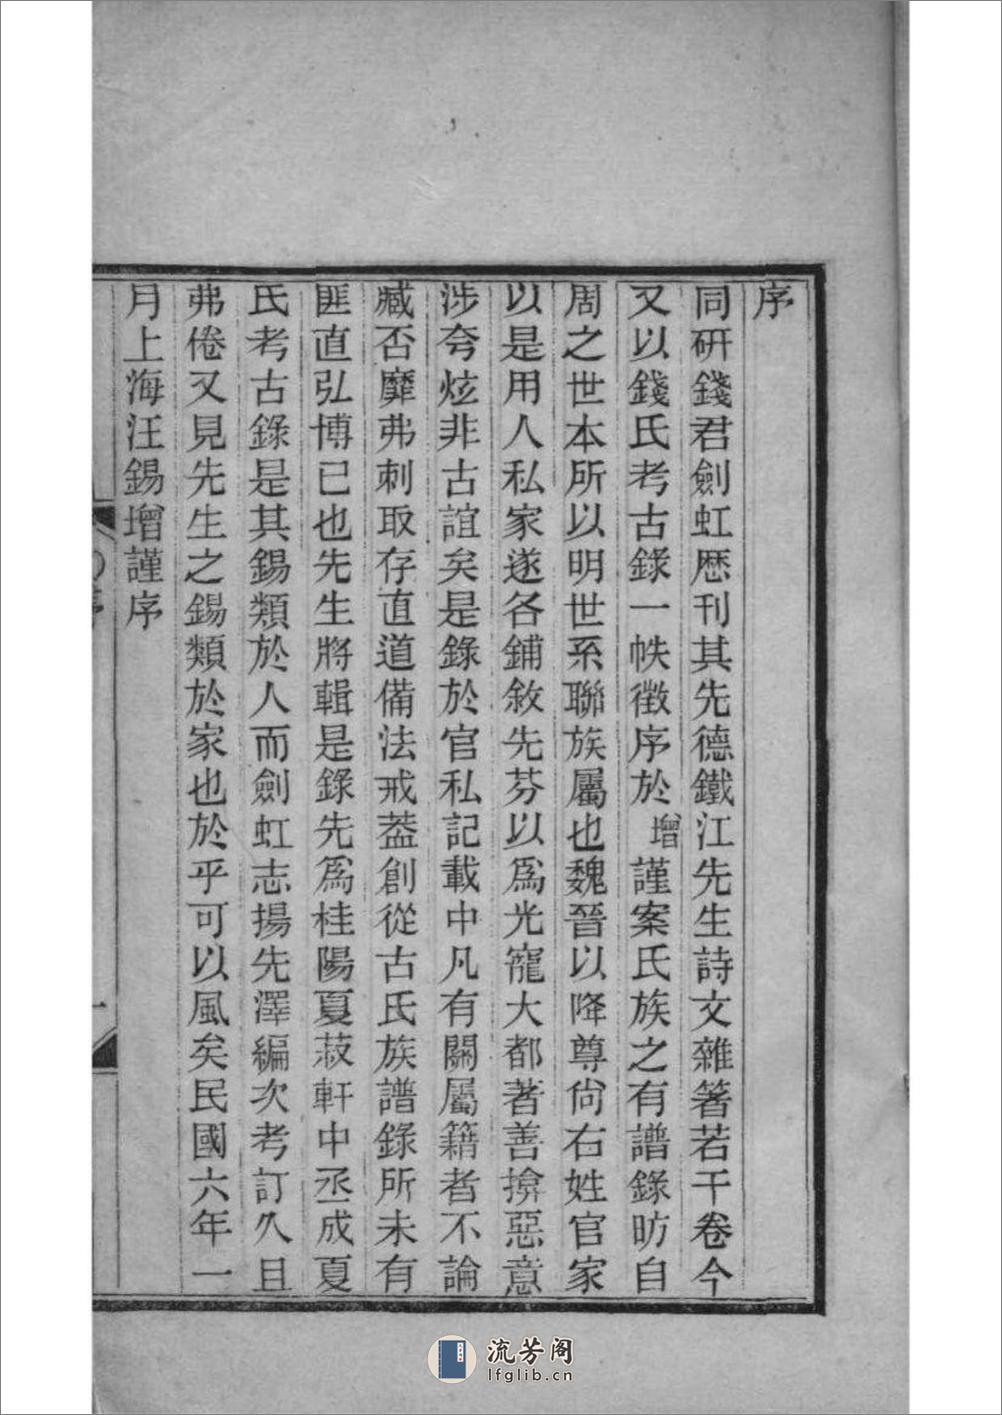 序
同硏錢君劍虹歷刊其先德鐵江先生詩文雜箸若干卷今
又以錢氏考古錄一帙徵序於增謹案氏族之有譜錄昉自
周之世本所以明世系聯族屬也魏晉以降尊尙右姓官家
以是用人私家遂各鋪敘先芬以爲光寵大都著善揜惡意
涉夸炫非古誼矣是錄於官私記載中凡有關屬籍者不論
臧否靡弗刺取存直道備法戒葢創從古氏族譜錄所未有
匪直弘博已也先生將輯是錄先爲桂陽夏菽軒中丞成夏
氏考古錄是其錫類於人而劍虹志揚先澤編次考訂久且
弗倦又見先生之錫類於家也於乎可以風矣民國六年一
月上海汪錫增謹序
流芳阁
lfglib.cn